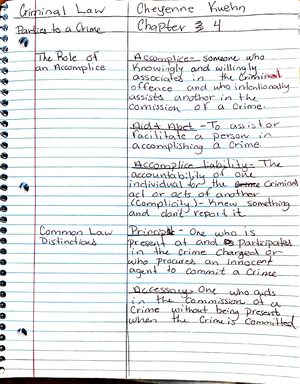 Criminal Law
Cheyenne Kuehn
Parties to a Crime
Chapter 3 4
The Role of
an Accomplice
Accomplice - someone who
Knowingly and willingly
associates in the Criminal
offence and who intentionally
assists another in the
comission of a crime.
Aid & Abet - To assist or
facilitate a person in
accomplishing a crime.
Accomplice liability - The
accountability of one
individual for the crime criminal
act or acts of another
(Complicity) - Knew something
and dont report it
Common Law
Distinctions
Principal - One who is
present at and participates
in the crime charged or
who procures an innocent
agent to commit a Crime
Accessory - One who aids
in the Commission of a
Crime without being present
when the Crime is Committed